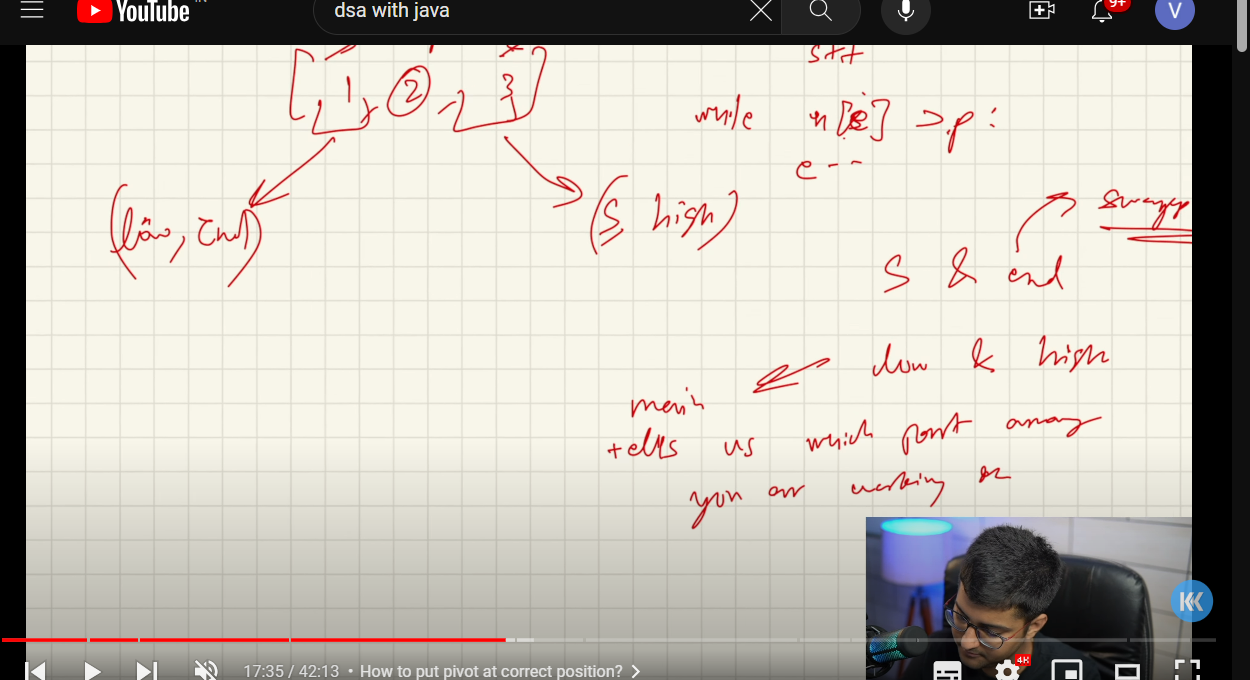 YouTube IN
dsa with java
9+
V
[1, 2, 3]
s++
while n[e] > p :
e--
(low, end)
(s, high)
swaps
s & end
low & high
main
tells us which part array
you are working on
17:35 / 42:13 • How to put pivot at correct position?
4K